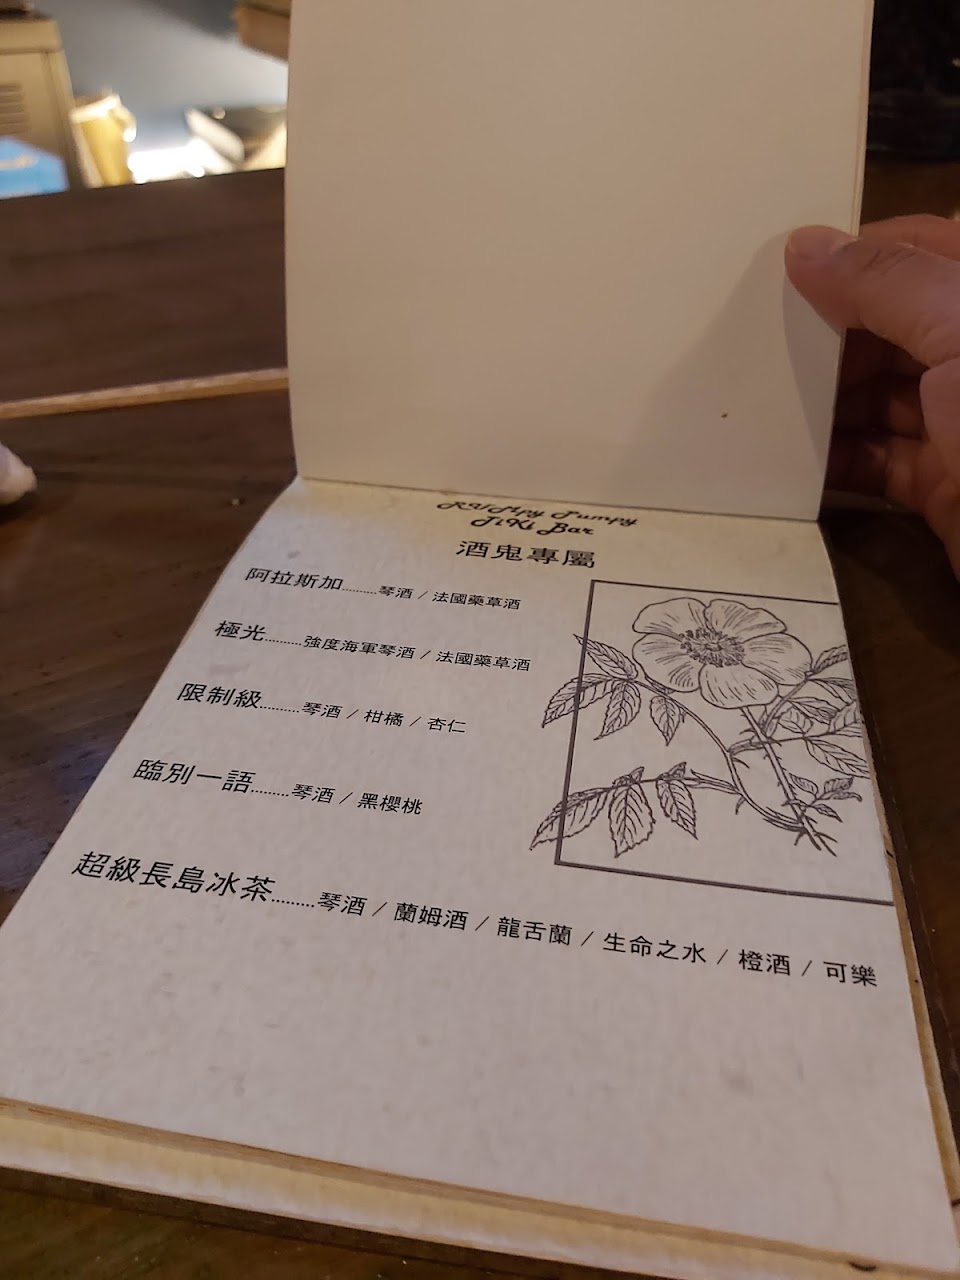 RUMpy Pumpy
TiKi Bar
酒鬼專屬
阿拉斯加..........琴酒 / 法國藥草酒
極光..........強度海軍琴酒 / 法國藥草酒
限制級..........琴酒 / 柑橘 / 杏仁
臨別一語..........琴酒 / 黑櫻桃
超級長島冰茶..........琴酒 / 蘭姆酒 / 龍舌蘭 / 生命之水 / 橙酒 / 可樂